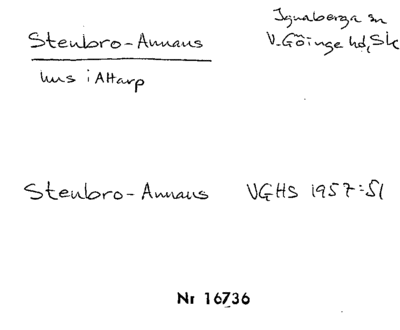 Stenbro-Annans
hus i Attarp
Ignaberga sn
V. Göinge hd, Sk
Stenbro-Annans VGHS 1957:51
Nr 16736